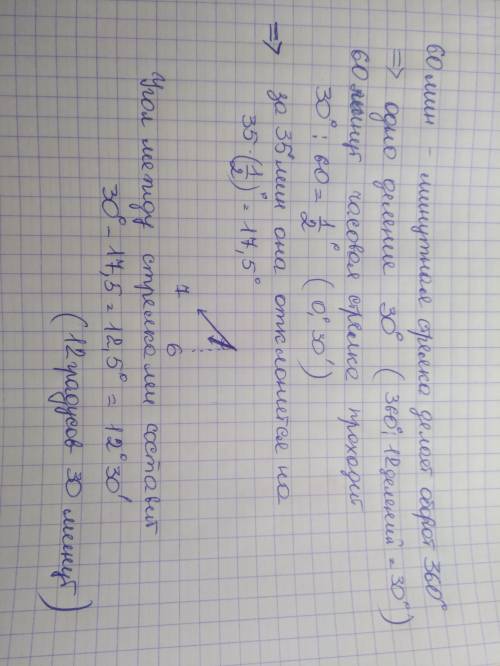 60 мин - минутная стрелка делает оборот 360°
=> одно деление 30° (360°:12делений = 30°)
60 минут часовая стрелка проходит
30° : 60 = 1/2° (0°30')
=> за 35 мин она отклоняется на
35·(1/2)° = 17,5°
7
6
Угол между стрелками составит
30° - 17,5 = 12.5° = 12°30'
(12 градусов 30 минут)